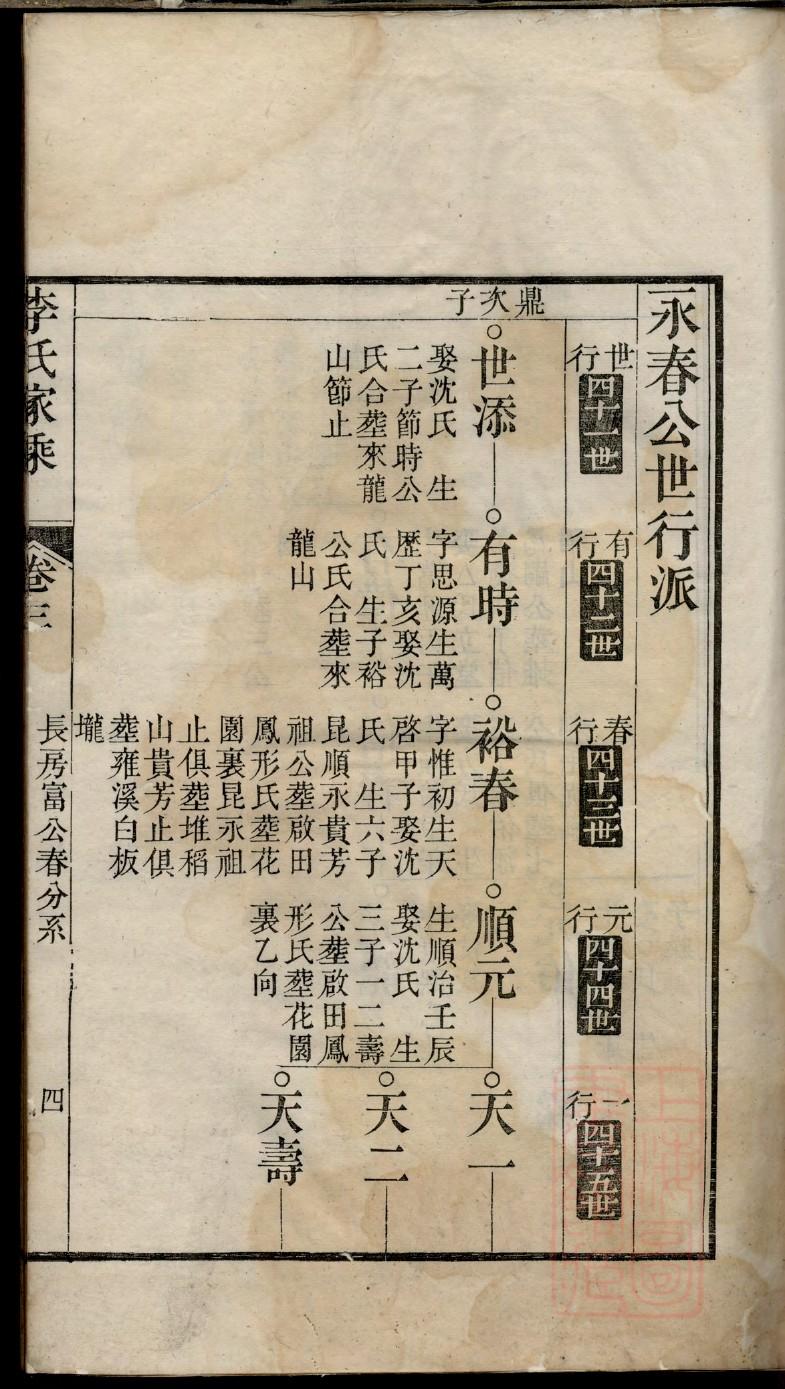 永春公世行派
世行
四十一世
有行
四十二世
春行
四十三世
元行
四十四世
一行
四十五世
鼎次子
世添
娶沈氏　生
二子節時公
氏合塟來龍
山節止
有時
字思源生萬
歷丁亥娶沈
氏　生子裕
公氏合塟來
龍山
裕春
字惟初生天
啓甲子娶沈
氏　生六子
昆順永貴芳
祖公塟啟田
鳳形氏塟花
園裏昆永祖
止俱塟堆稻
山貴芳止俱
塟雍溪白板
壠
順元
生順治壬辰
娶沈氏　生
三子一二壽
公塟啟田鳳
形氏塟花園
裏乙向
天一
天二
天壽
李氏家乘
卷三
長房富公春分系
四